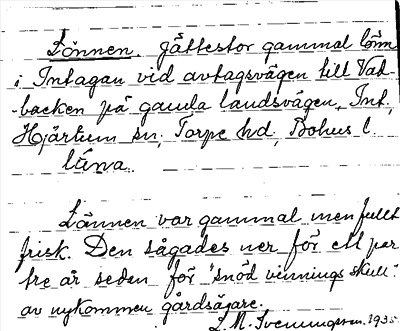 Lönnen, jättestor gammal lönn
i Intagan vid avtagsvägen till Vad-
-backen på gamla landsvägen, Int,
Hjärtum sn, Torpe hd, Bohus l.
Lönnen var gammal men fullt
frisk. Den sågades ner för ett par
tre år sedan för "snöd vinnings skull"
av nykommen gårdsägare.
1935